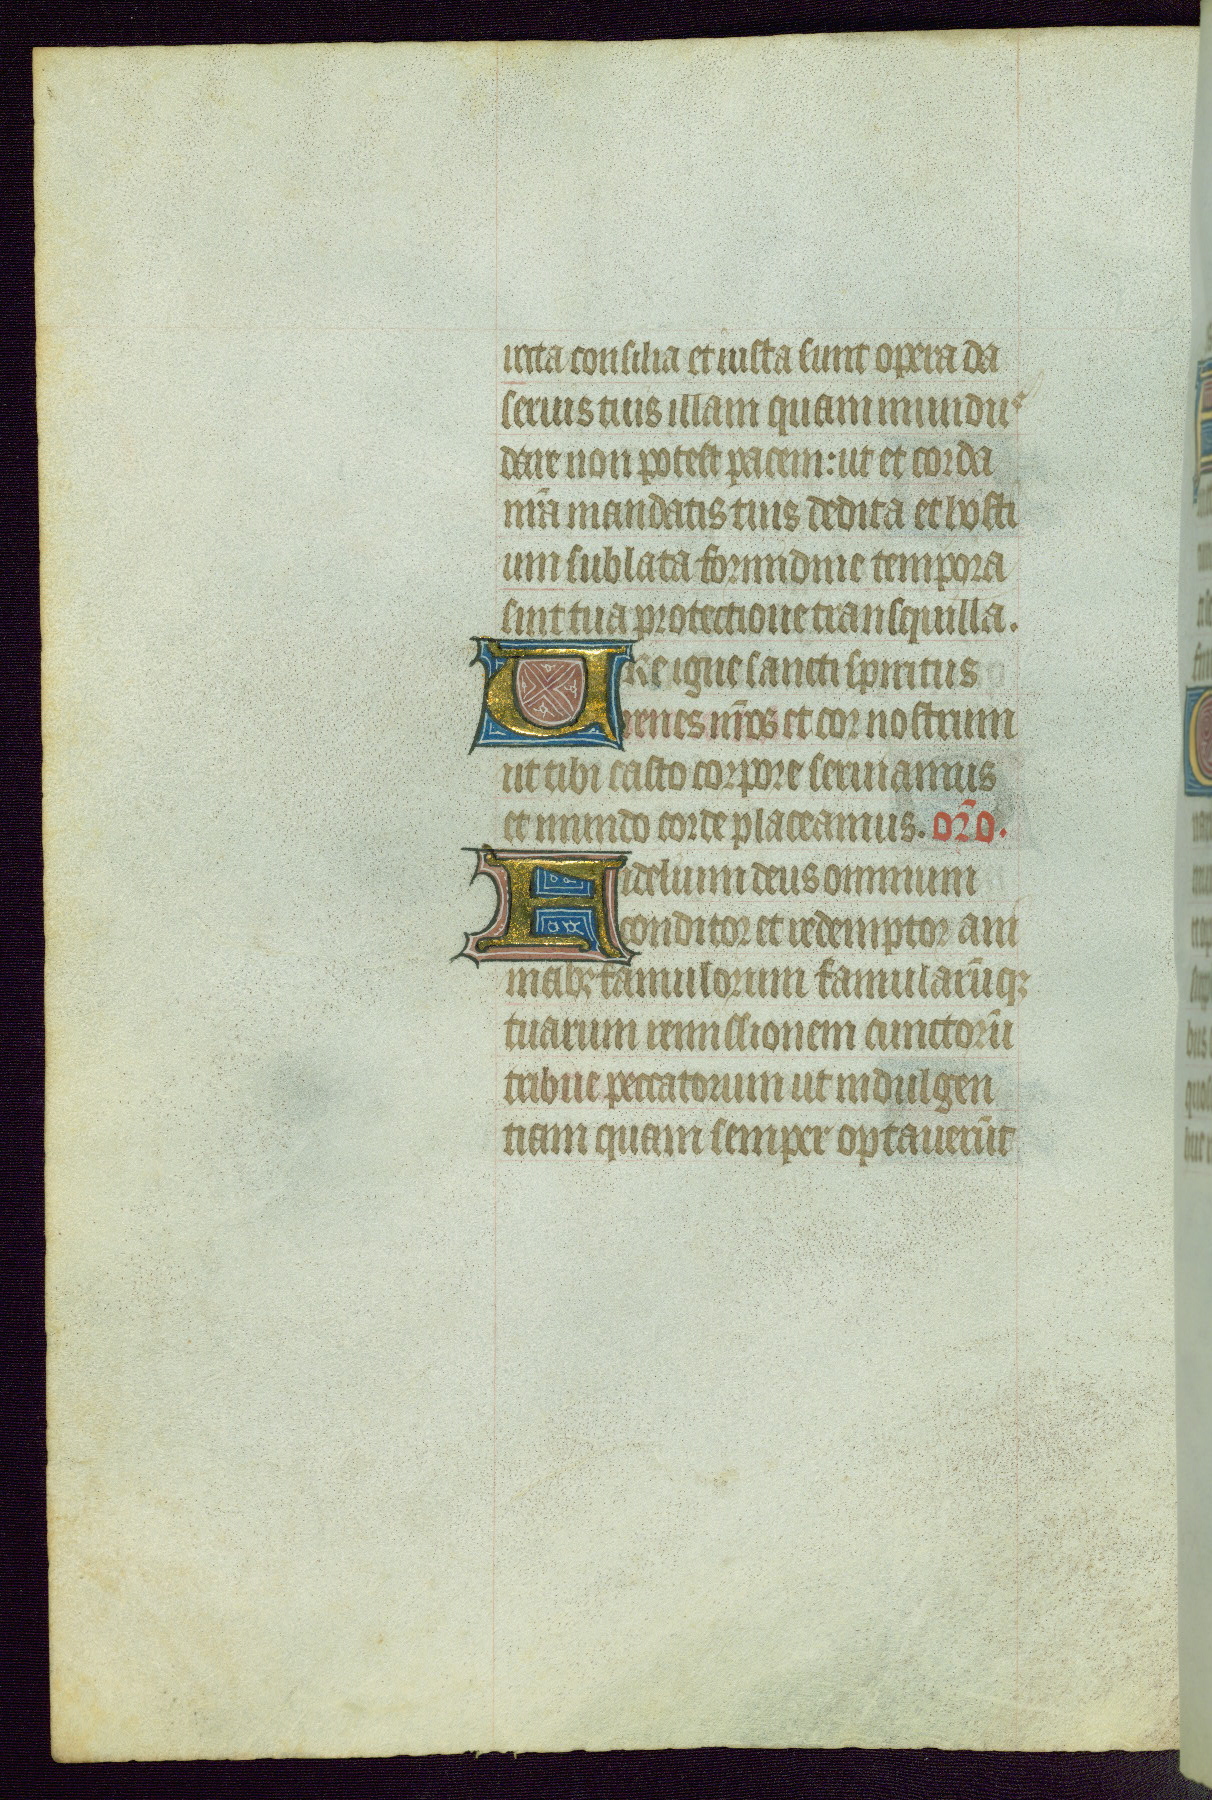 recta consilia et iusta sunt opera da
seruis tuis illam quam mundus
dare non potest pacem: ut et corda
nr̃a mandatis tuis dedita et hosti
um sublata formidine tempora
sint tua protectione transquilla.
URe igne sancti spiritus
renes nr̃os et cor nostrum
ut tibi casto corpore seruiamus
et mundo corde placeamus. or̃o.
Fidelium deus omnium
conditor et redemptor ani
mabꝫ famulorum famularũqꝫ
tuarum remissionem cunctorũ
tribue peccatorum ut indulgen
tiam quam semper optauerũt